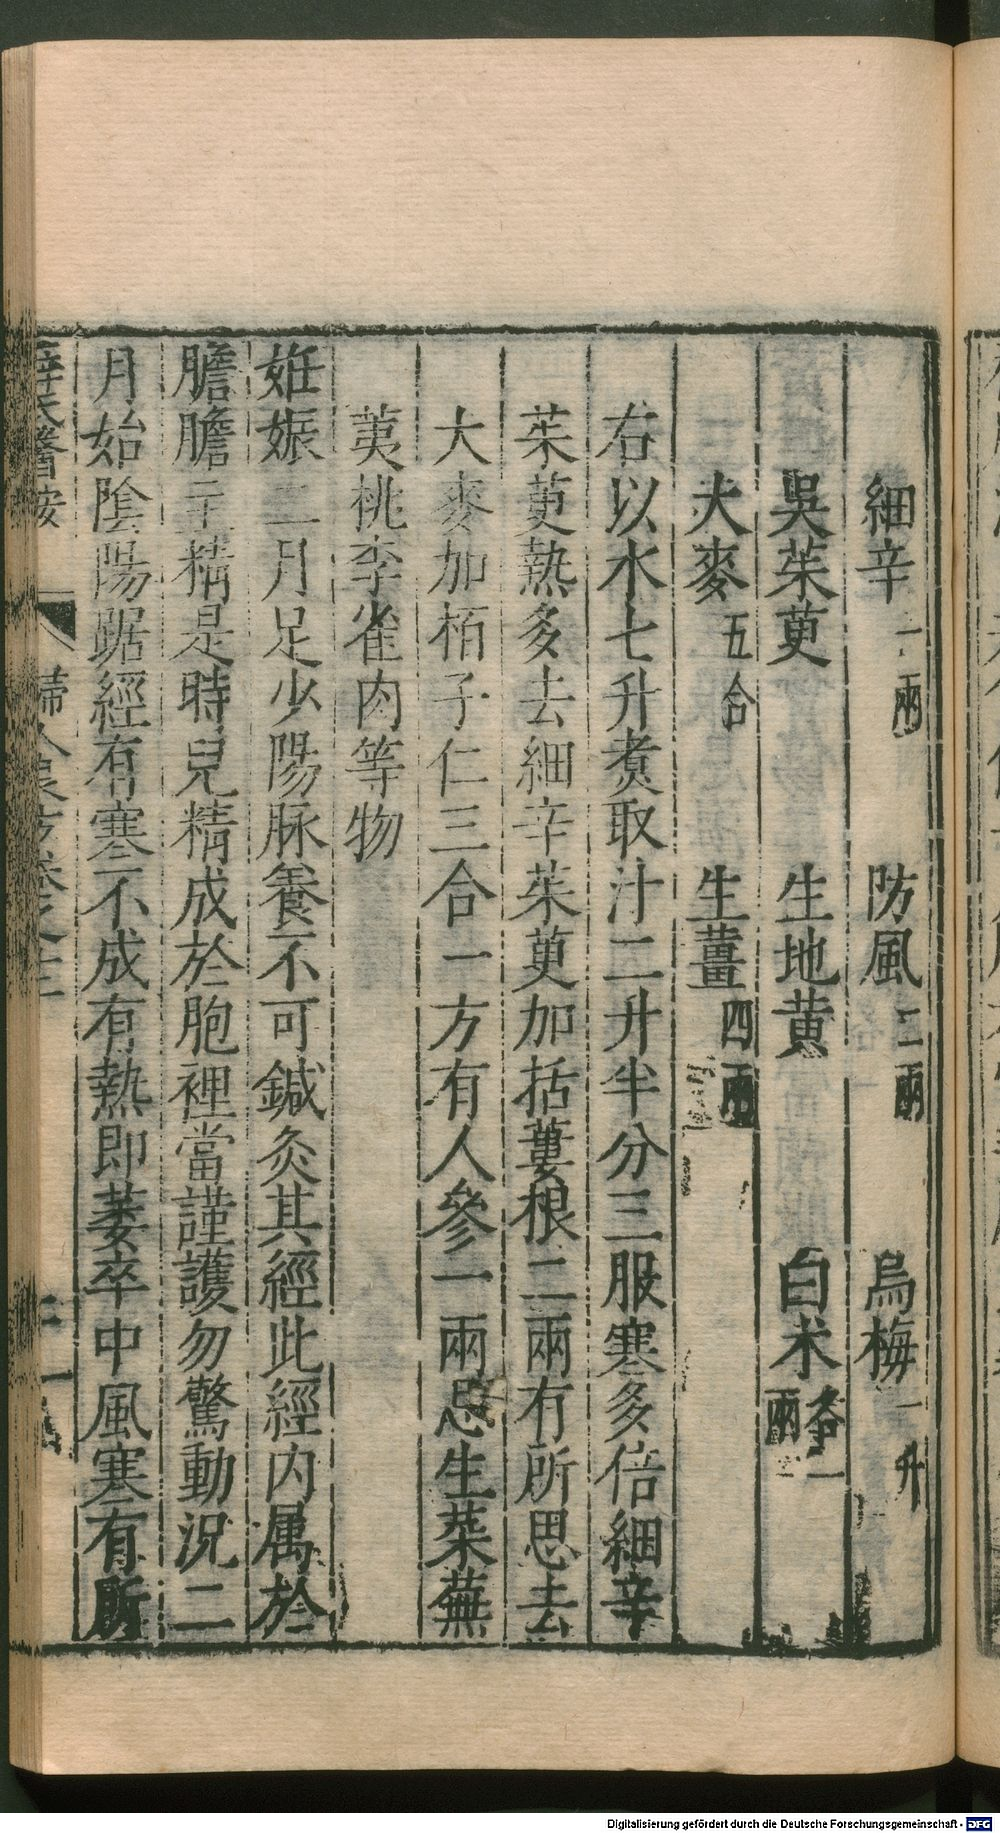 細辛一兩　防風二兩　烏梅一升
吳茱萸　生地黄　白术各一兩
大麥五合　生薑四兩
右以水七升煑取汁二升半分三服寒多倍細辛
茱萸熱多去細辛茱萸加括蔞根二兩有所思去
大麥加栢子仁三合一方有人參一兩忌生菜蕪
荑桃李雀肉等物
妊娠二月足少陽脉養不可鍼灸其經此經内属於
膽膽主精是時兒精成於胞裡當謹護勿驚動況二
月始陰陽踞經有寒不成有熱即萎卒中風寒有所
薛氏醫按　婦人良方卷之十二
Digitalisierung gefördert durch die Deutsche Forschungsgemeinschaft - DFG